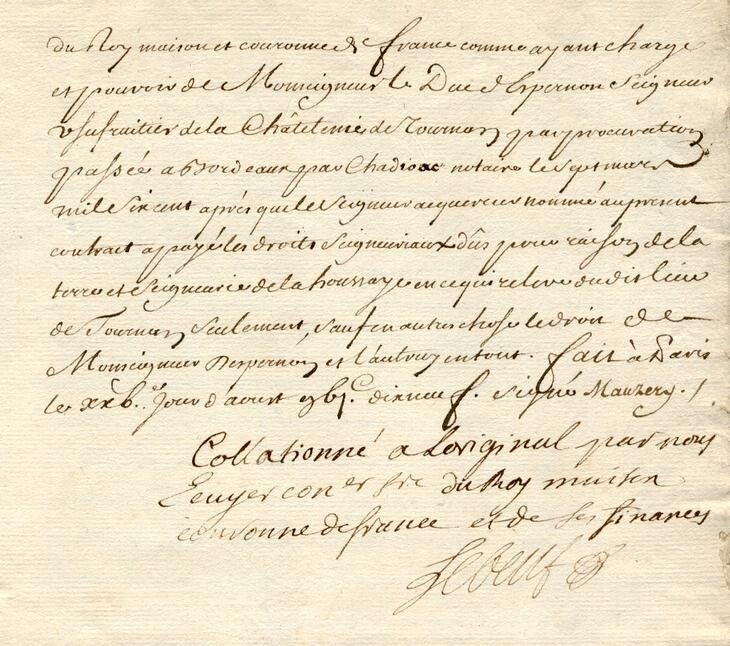 du Roy maison et couronne de france comme ayant charge
et pouvoir de Monseigneur le Duc d'Espernon Seigneur
usufruitier de la Châtelenie de Tournan par procuration
passée a Bordeaux par notaire le sept mars
mil six cent après que le Seigneur acquereur nommé au present
contrat a payé les droits Seigneuriaux dûs pour raison de la
terre et Seigneurie de la houssaye en ce qui releve dudit lieu
de Tournan seulement, sauf en autre chose le droit de
Monseigneur Despernon et l'autruy en tout. fait à Paris
le xxb.e Jour d'aoust dix neuf. Signé Mauzery. /
Collationné a Loriginal par nous
Ecuyer con.er sre du Roy maison
couronne de france et de ses finances
Leboeuf